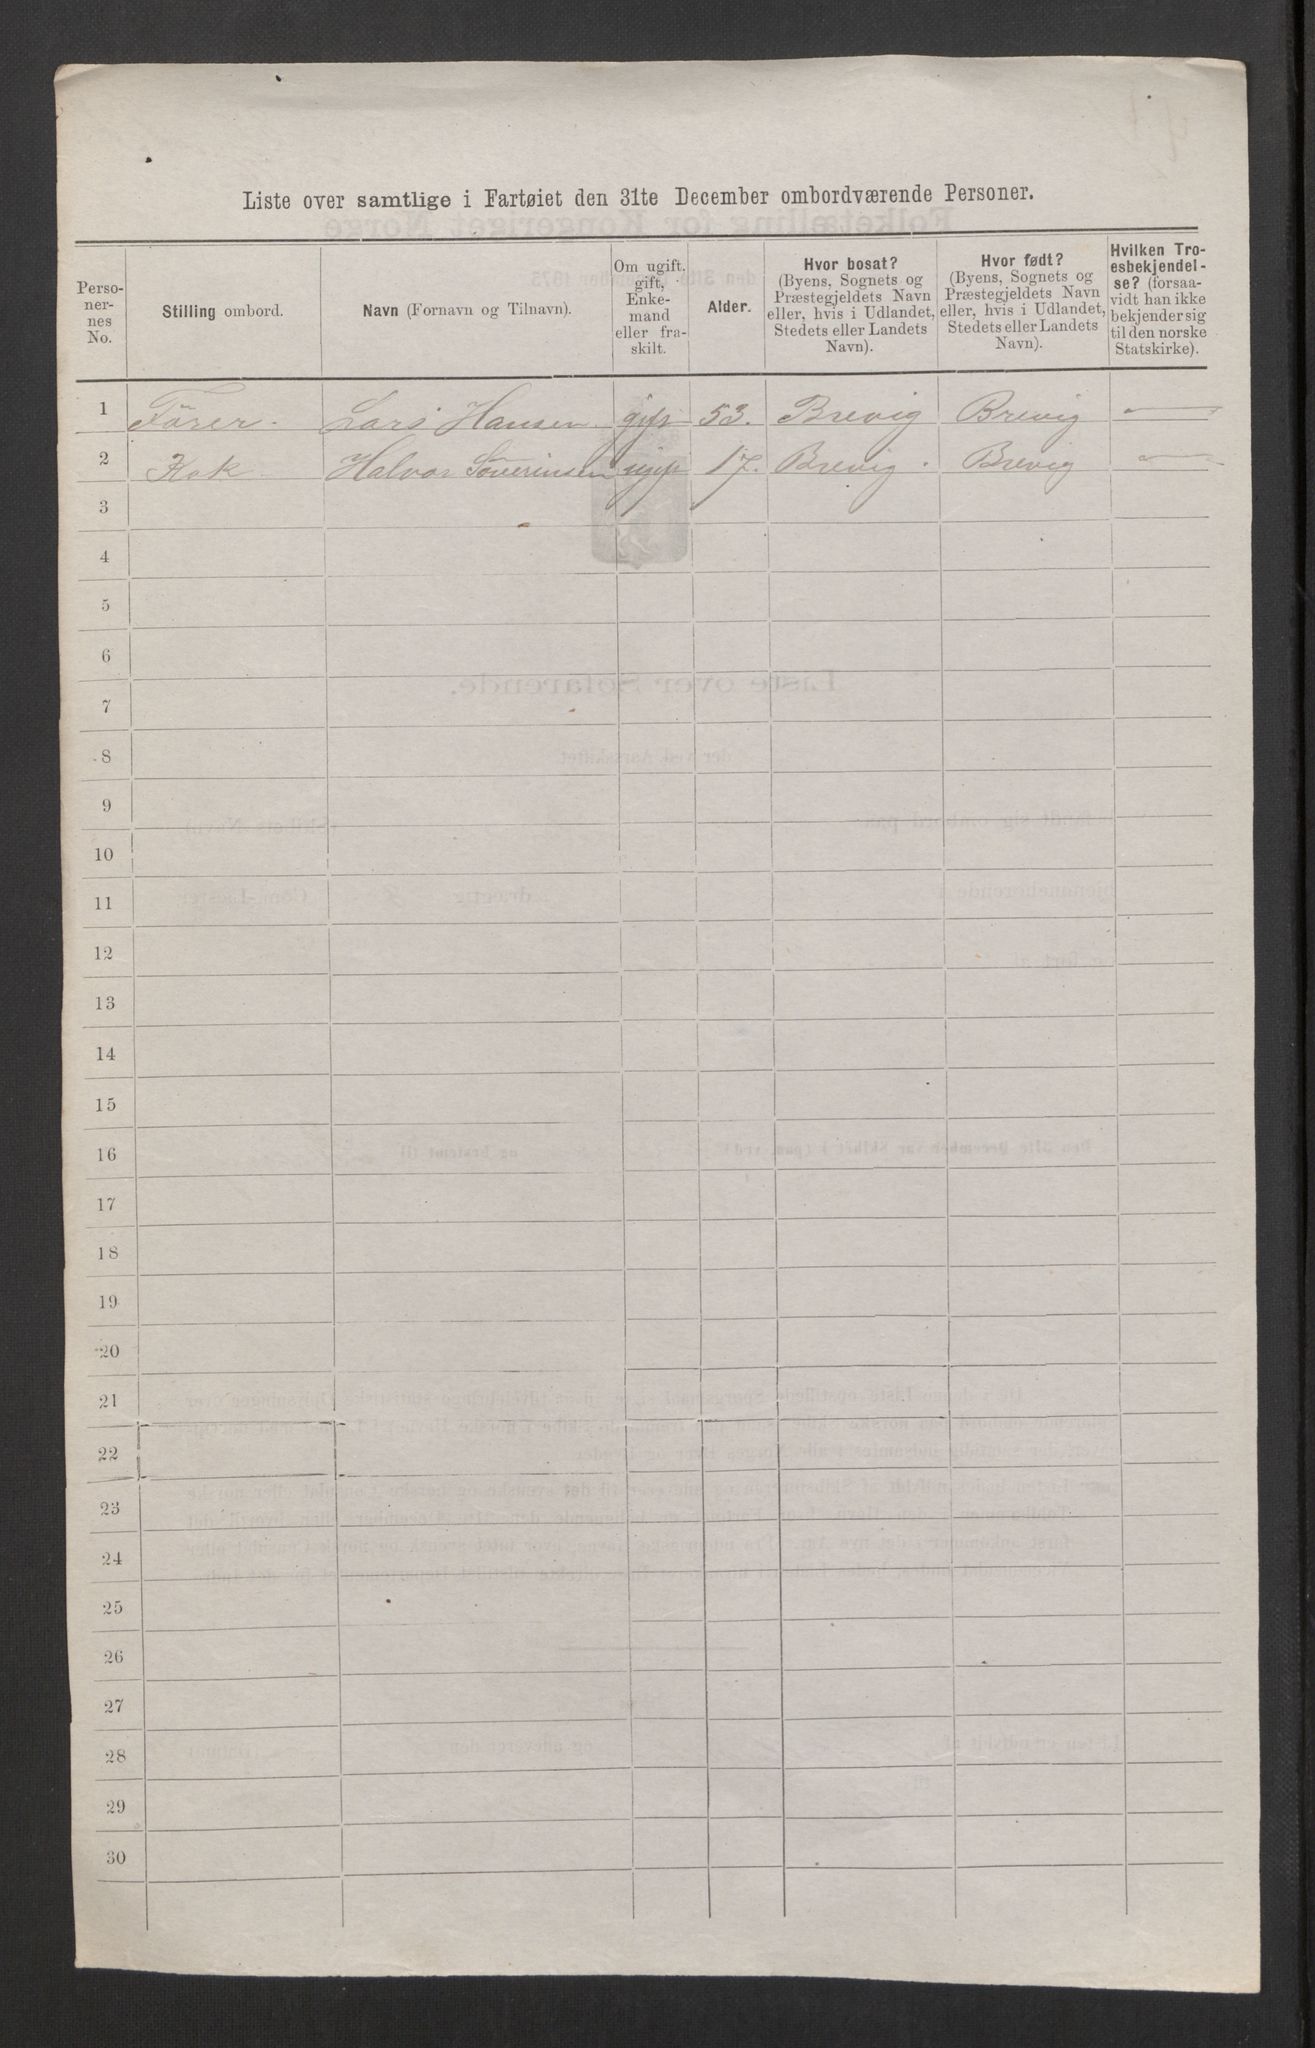 Liste over samtlige i Fartøiet den 31te December ombordværende Personer.
Perso-
ner-
nes
No.
Stilling ombord.
Navn (Fornavn og Tilnavn).
Om ugift,
gift,
Enke-
mand
eller fra-
skilt.
Alder.
Hvor bosat?
(Byens, Sognets og
Præstegjeldets Navn
eller, hvis i Udlandet,
Stedets eller Landets
Navn).
Hvor født?
(Byens, Sognets og
Præstegjeldets Navn
eller, hvis i Udlandet,
Stedets eller Landets
Navn).
Hvilken Tro-
esbekjendel-
se? (forsaa-
vidt han ikke
bekjender sig
til den norske
Statskirke).
1 Förer. Lars Hansen. gift 53. Brevig Brevig —
2 Kok Halvor Söverinsen ugift 17. Brevig. Brevig —
3
4
5
6
7
8
9
10
11
12
13
14
15
16
17
18
19
20
21
22
23
24
25
26
27
28
29
30